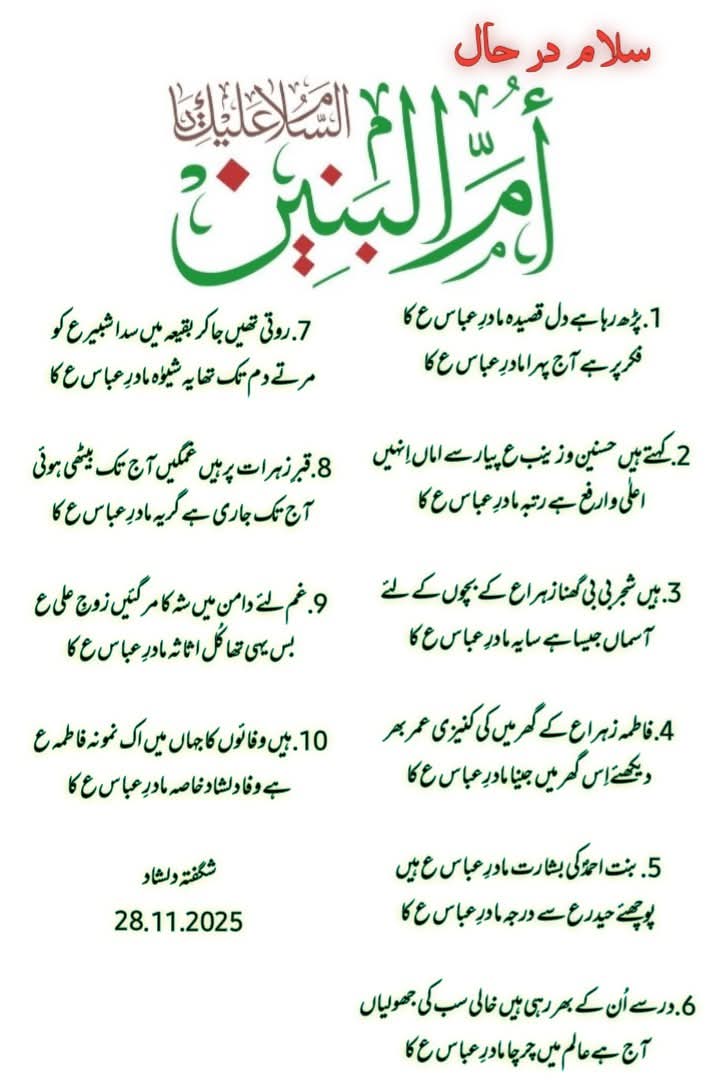 سلام در حال
السلام علیك یا
أم البنین
1. پڑھ رہا ہے دل قصیدہ مادرِ عباس ع کا
فکر پر ہے آج پہرا مادرِ عباس ع کا
2. کہتے ہیں حسنین و زینب ع پیار سے اماں اِنہیں
اعلٰی و ارفع ہے رتبہ مادرِ عباس ع کا
3. ہیں شجر بی بی گھنا زہرا ع کے بچوں کے لئے
آسماں جیسا ہے سایہ مادرِ عباس ع کا
4. فاطمہ زہرا ع کے گھر میں کی کنیزی عمر بھر
دیکھئے اِس گھر میں جینا مادرِ عباس ع کا
5. بنت احمدؐ کی بشارت مادرِ عباس ع ہیں
پوچھئے حیدر ع سے درجہ مادرِ عباس ع کا
6. در سے اُن کے بھر رہی ہیں خالی سب کی جھولیاں
آج ہے عالم میں چرچا مادرِ عباس ع کا
7. روتی تھیں جا کر بقیعہ میں سدا شبیر ع کو
مرتے دم تک تھا یہ شیوٰہ مادرِ عباس ع کا
8. قبر زہرات پر ہیں غمگیں آج تک بیٹھی ہوئی
آج تک جاری ہے گریہ مادرِ عباس ع کا
9. غم لئے دامن میں شہ کا مر گئیں زوجِ علی ع
بس یہی تھا کُل اثاثہ مادرِ عباس ع کا
10. ہیں وفائوں کا جہاں میں اک نمونہ فاطمہ ع
ہے وفا دلشاد خاصہ مادرِ عباس ع کا
شگفتہ دلشاد
28.11.2025